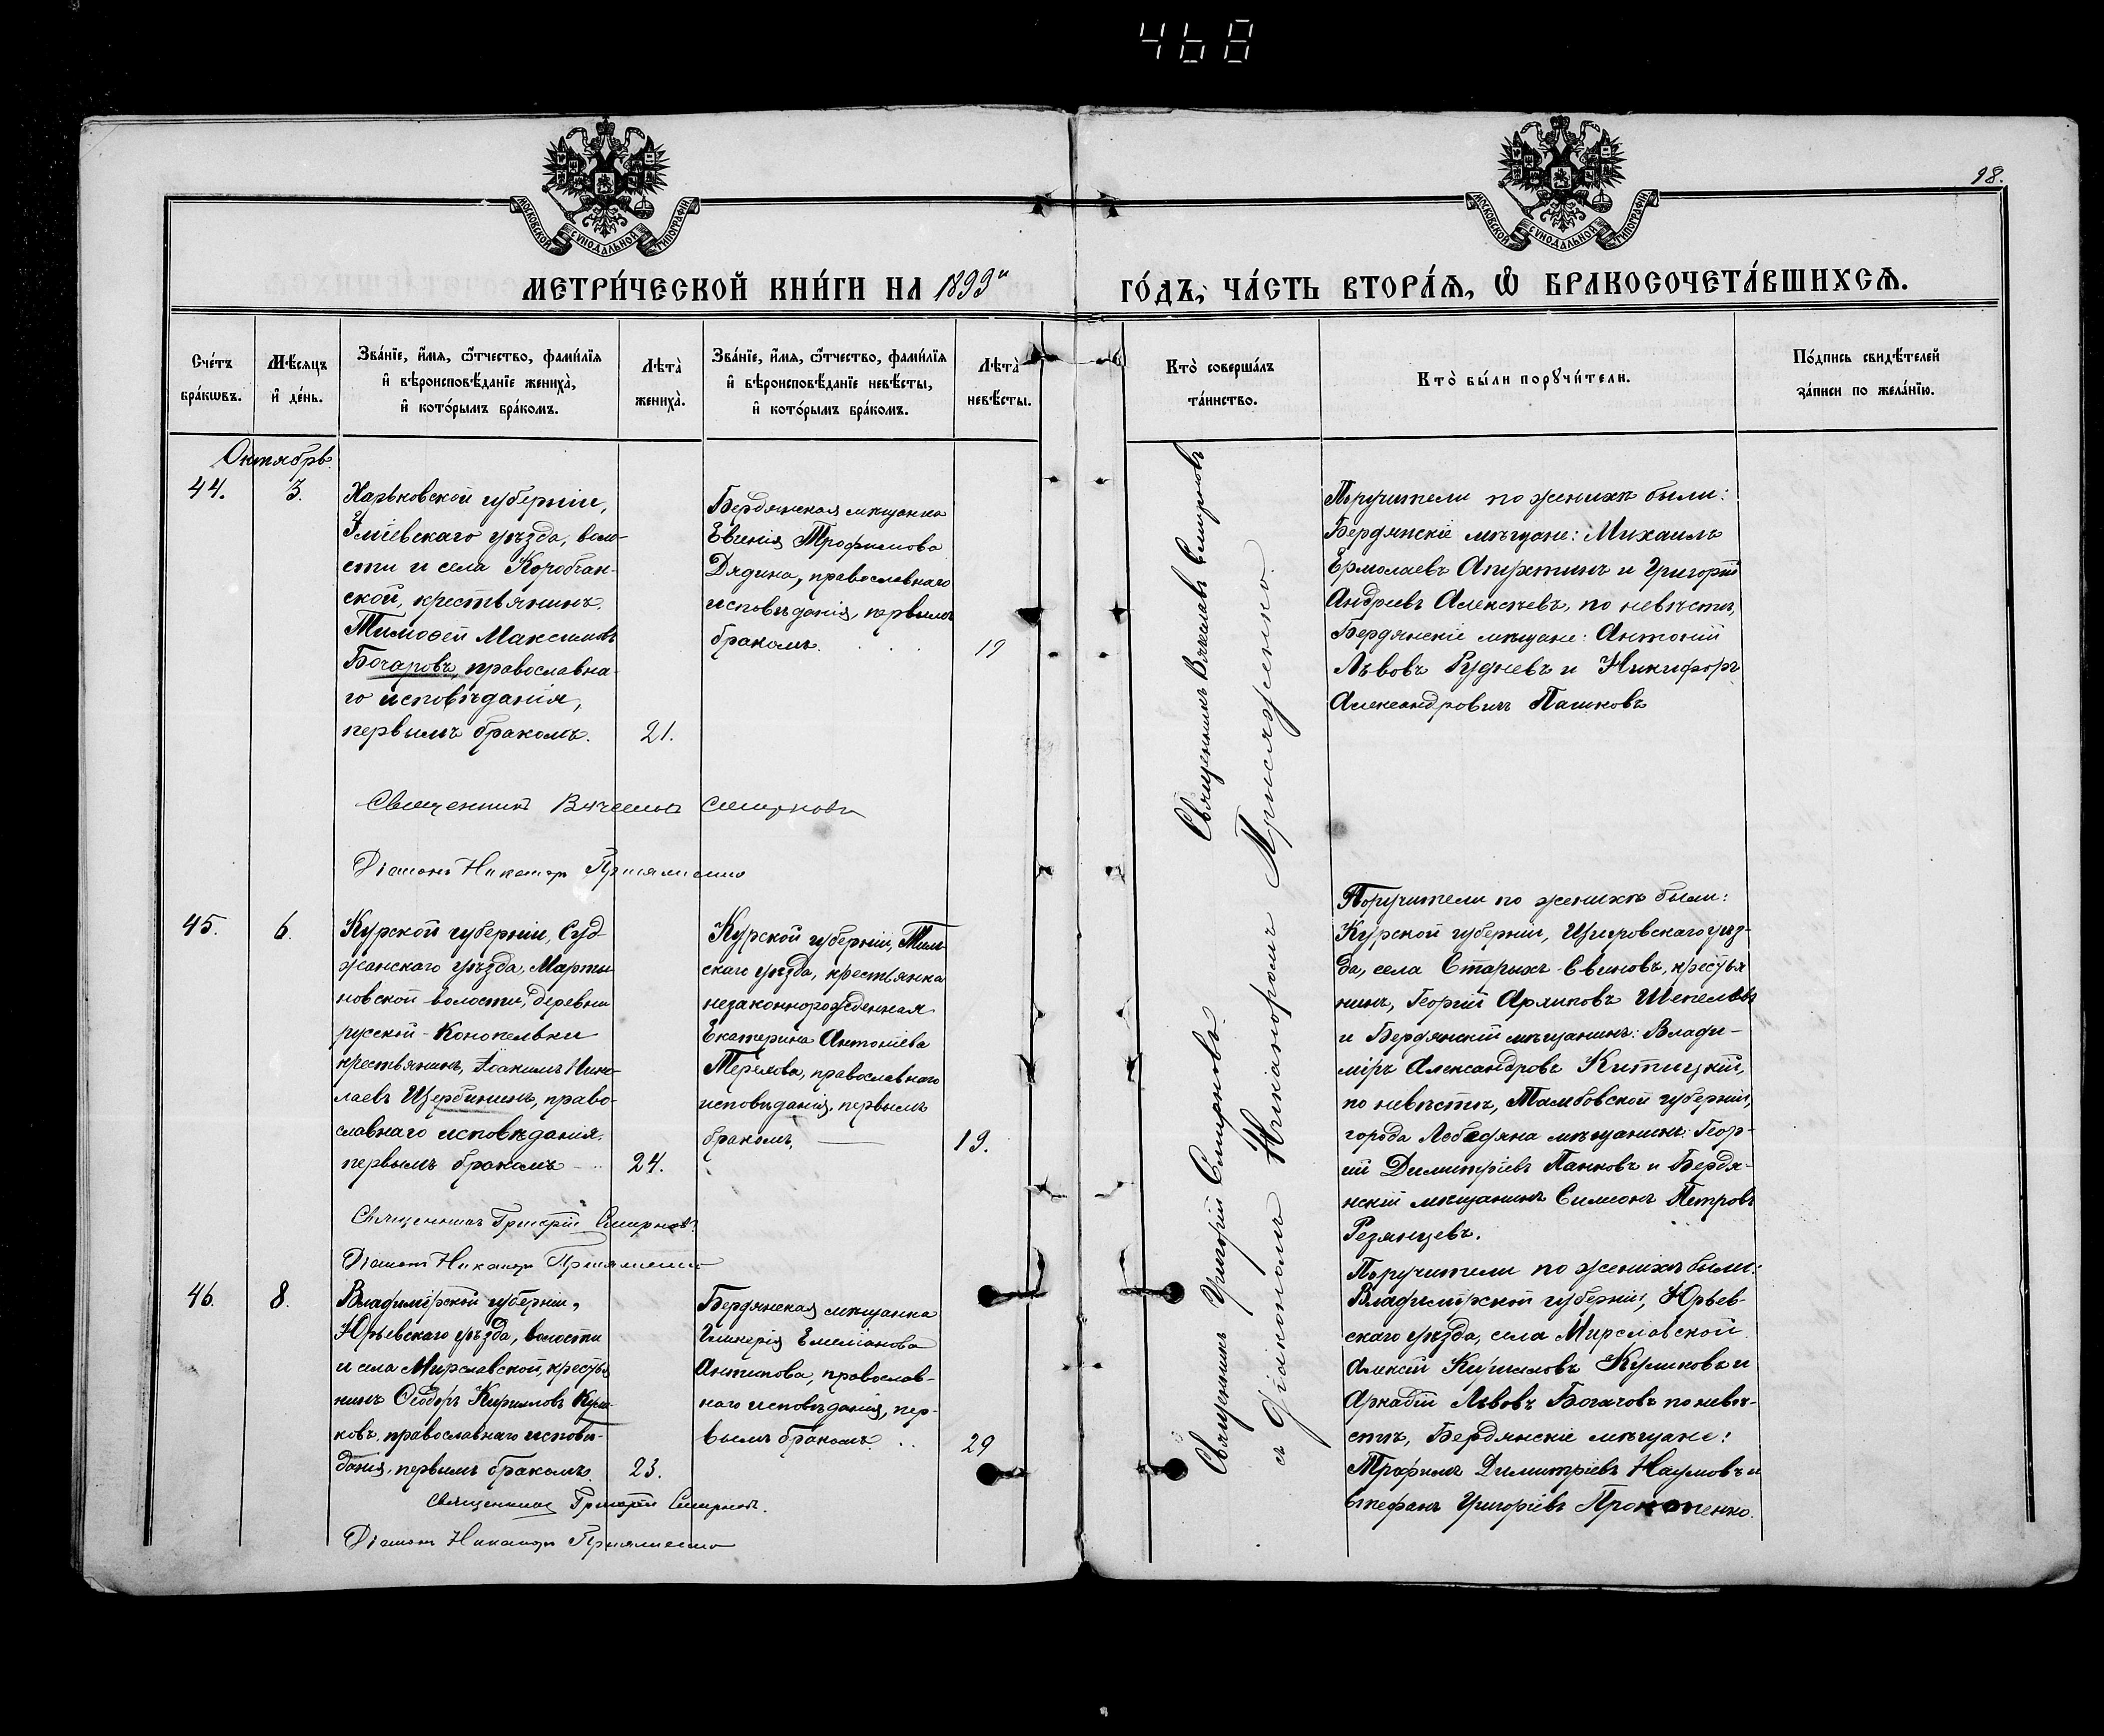 468
98.
МОСКОВСКОЙ СѴНОДАЛЬНОЙ ТИПОГРАФІИ
МОСКОВСКОЙ СѴНОДАЛЬНОЙ ТИПОГРАФІИ
МЕТРИ́ЧЕСКОЙ КНИ́ГИ НА 1893й
ГО́ДЪ, ЧА́СТЬ ВТОРА́Ѧ, Ѽ БРАКОСОЧЕТА́ВШИХСѦ.
Сче́тъ бра́кѡвъ.
Мѣ́сяцъ и҆ де́нь.
Зва́нїе, и҆́мя, ѻ҆́тчество, фами́лїя
и҆ вѣроисповѣ́данїе жениха̀,
и҆ кото́рымъ бра́комъ.
Лѣта̀ жениха̀.
Зва́нїе, и҆́мя, ѻ҆́тчество, фами́лїя
и҆ вѣроисповѣ́данїе невѣ́сты,
и҆ кото́рымъ бра́комъ.
Лѣта̀ невѣ́сты.
Кто̀ соверша́лъ
та́инство.
Кто̀ бы́ли порꙋчи́тели.
По́дпись свидѣ́телей
за́писи по жела́нїю.
Октябрь.
44.
3.
Харьковской губерніи,
Зміевскаго уѣзда, воло-
сти и села Коробчан-
ской, крестьянинъ.
Тимоѳей Максимовъ
Бочаровъ, православна-
го исповѣданія,
первымъ бракомъ.
21.
Бердянская мѣщанка
Евгенія Трофимова
Дядина, православнаго
исповѣданія, первымъ
бракомъ.
19
Священникъ Вячеславъ Смирновъ
Діаконъ Никаноръ Присяженко
Поручители по женихѣ были:
Бердянскіе мѣщане: Михаилъ
Ермолаевъ Апухтинъ и Григорій
Андреевъ Алексѣевъ, по невѣстѣ,
Бердянскіе мѣщане: Антоній
Львовъ Рудневъ и Никифоръ
Александровичъ Пашковъ
45.
6.
Курской губерніи, Суд-
жанскаго уѣзда, Марты-
новской волости, деревни
русской-Конопельки
крестьянинъ, Іоакимъ Нико-
лаевъ Щербининъ, право-
славнаго исповѣданія.
первымъ бракомъ
24.
Курской губерніи, Тим-
скаго уѣзда, крестьянка
незаконнорожденная
Екатерина Антоніева
Терехова, православнаго
исповѣданія, первымъ
бракомъ,
19.
Священникъ Григорій Смирновъ.
Діаконъ Никаноръ Присяженко
Поручители по женихѣ были:
Курской губерніи, Щигровскаго уѣз-
да, села Старыхъ-Савиновъ, крестья
нинъ, Георгій Архиповъ Шепелевъ
и Бердянскій мѣщанинъ: Влади-
міръ Александровъ Китицкій,
по невѣстѣ, Тамбовской губерніи,
города Лебедяна мѣщанинъ: Геор-
гій Димитріевъ Панковъ и Бердя-
нскій мѣщанинъ Симеонъ Петровъ
Резянцевъ.
46.
8.
Владимірской губерніи,
Юрьевскаго уѣзда, волости
и села Мирславской, крестья
нинъ Ѳеодоръ Кирилловъ Кули-
ковъ, православнаго исповѣ-
данія, первымъ бракомъ.
23.
Бердянская мѣщанка
Гликерія Емеліанова
Антипова, православ-
наго исповѣданія, пер-
вымъ бракомъ.
29
Священникъ Григорій Смирновъ.
Діаконъ Никаноръ Присяженко
Поручители по женихѣ были:
Владимірской губерніи, Юрьев-
скаго уѣзда, села Мирславской
Алексѣй Кирилловъ Куликовъ и
Аркадій Львовъ Богачовъ по невѣ-
стѣ, Бердянскіе мѣщане:
Трофимъ Димитріевъ Наумовъ и
Стефанъ Григоріевъ Прокопенко.
Священникъ Вячеславъ Смирновъ
Священникъ Григорій Смирновъ.
съ Діакономъ Никаноромъ Присяженко.